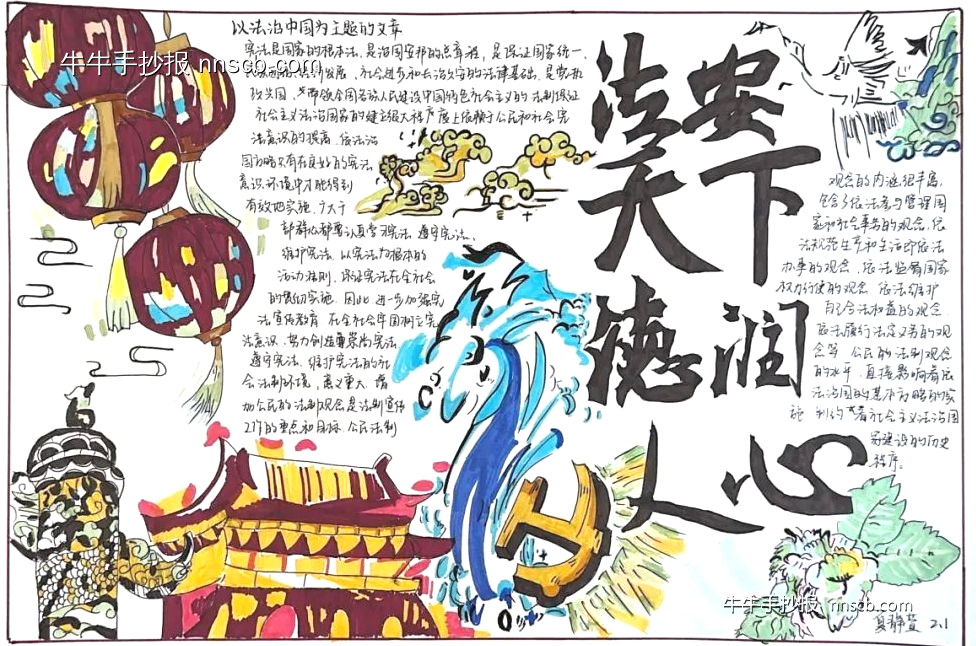 牛牛手抄报 nnscb.com
以法治中国为主题的文章
宪法是国家的根本法,是治国安邦的总章程,是保证国家统一、
社会进步和长治久安的法律基础,是
全国各族人民建设中国特色社会主义的法制保证
社会主义法治国家的建立很大程度上依赖于公民和社会宪
法意识的提高
因为略只有在良好的宪法
意识环境中才能得到
有效地实施,广大干
部群众都要认真学习宪法、遵守宪法、
维护宪法,以宪法为根本的
活动准则,保证宪法在全社会
的贯彻实施。因此,进一步加强宪
法宣传教育,在全社会牢固树立宪
法意识,努力创造重崇尚宪法、
遵守宪法、维护宪法的社
会法制环境,意义重大。增
加公民的法制观念是法制宣传
工作的重点和目标,公民法制
法安
天下
德润
人心
观念的内涵很丰富,
包含了依法参与管理国
家和社会事务的观念、依
法规范生产和生活即依法
办事的观念、依法监督国家
权力行使的观念、依法维护
自己合法权益的观念、
依法履行法定义务的观
念等。公民的法制观念
的水平,直接影响着依
法治国的基本方略的实
施,制约着社会主义法治国
家建设的历史
程序。
牛牛手抄报 nnscb.com
夏静萱 2.1